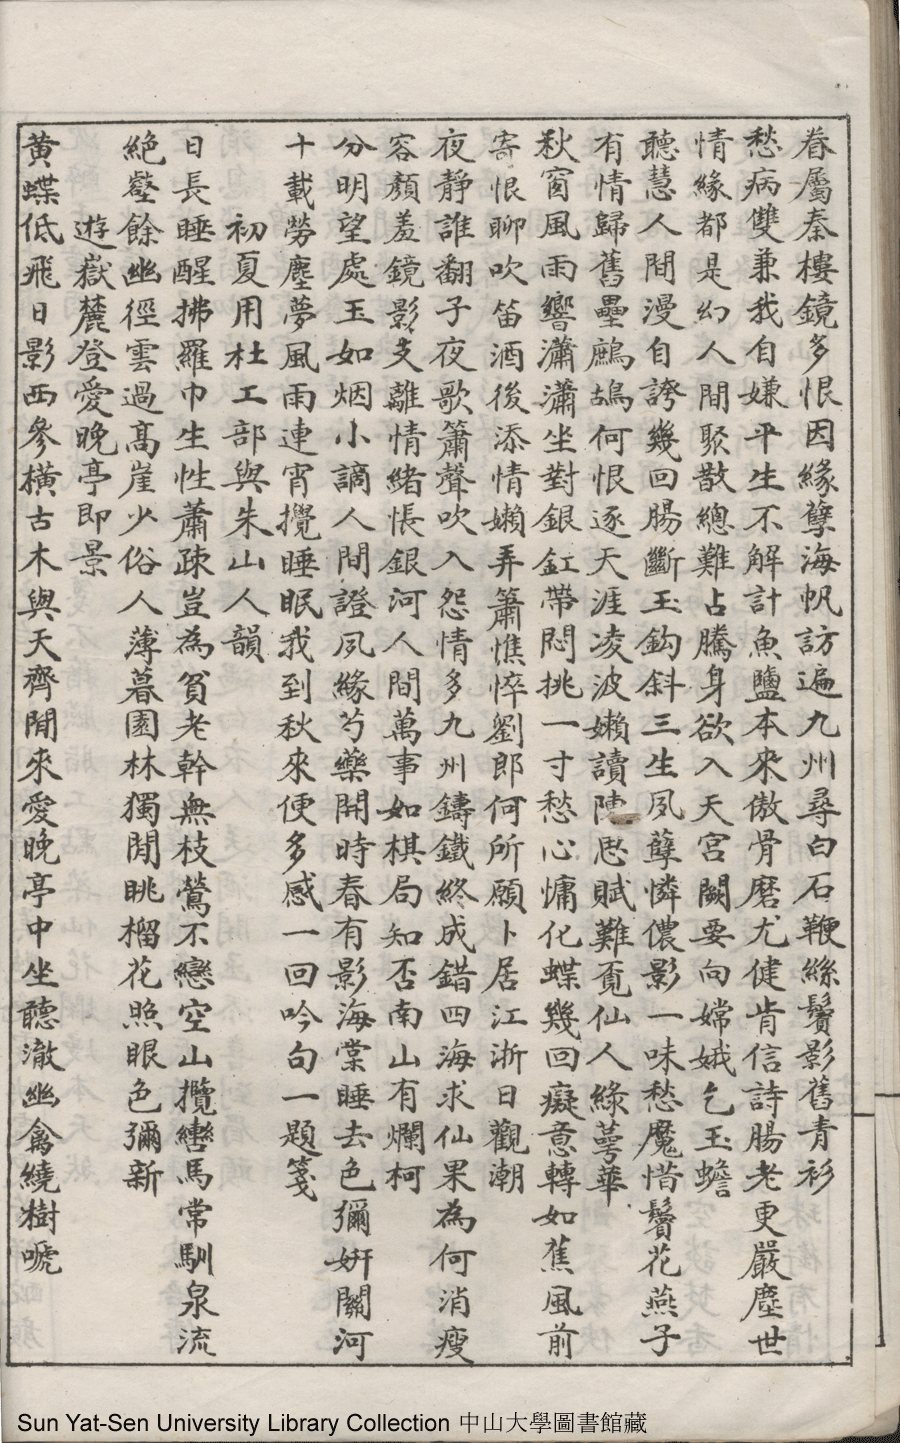 眷屬秦樓鏡多恨因緣孽海帆訪遍九州尋白石鞭絲鬢影舊青衫
愁病雙兼我自嫌平生不解計魚鹽本來傲骨磨尤健肯信詩腸老更嚴塵世
情緣都是幻人間聚散總難占騰身欲入天宮闕要向嫦娥乞玉蟾
聽慧人間漫自誇幾回腸斷玉鈎斜三生夙孽憐儂影一味愁魔惜鬢花燕子
有情歸舊壘鷓鴣何恨逐天涯凌波嬾讀陳思賦難覔仙人綠萼華
秋窗風雨響瀟瀟坐對銀釭帶悶挑一寸愁心慵化蝶幾回癡意轉如蕉風前
寄恨聊吹笛酒後添情嬾弄簫憔悴劉郎何所願卜居江浙日觀潮
夜靜誰翻子夜歌簫聲吹入怨情多九州鑄鐵終成錯四海求仙果為何消瘦
容顏羞鏡影支離情緒悵銀河人間萬事如棋局知否南山有爛柯
分明望處玉如烟小謫人間證夙緣芍藥開時春有影海棠睡去色彌妍關河
十載勞塵夢風雨連宵攪睡眠我到秋來便多感一回吟句一題箋
初夏用杜工部與朱山人韻
日長睡醒拂羅巾生性蕭疎豈為貧老幹無枝鶯不戀空山攬轡馬常馴泉流
絕壑餘幽徑雲過高崖少俗人薄暮園林獨閒眺榴花照眼色彌新
遊嶽麓登愛晚亭即景
黃蝶低飛日影西參橫古木與天齊閒來愛晚亭中坐聽澈幽禽繞樹嗁
Sun Yat-Sen University Library Collection 中山大學圖書館藏